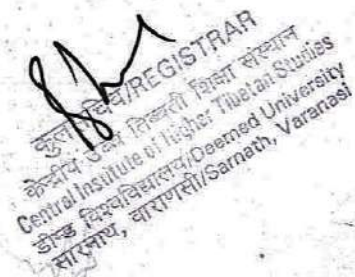 कुल सचिव/REGISTRAR
केन्द्रीय उच्च तिब्बती शिक्षा संस्थान
Central Institute of Higher Tibetan Studies
डीम्ड विश्वविद्यालय/Deemed University
सारनाथ, वाराणसी/Sarnath, Varanasi